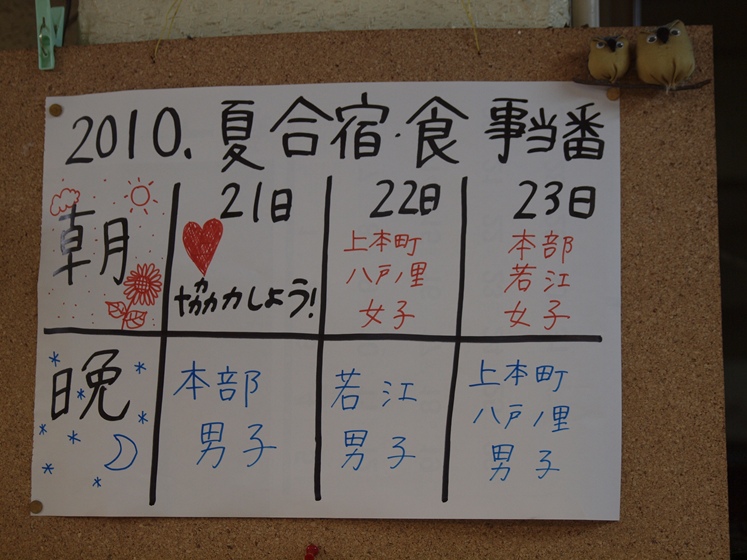 2010.夏合宿・食事当番
朝
21日
協力しよう!
22日
上本町
八戸ノ里
女子
23日
本部
若江
女子
晩
本部
男子
若江
男子
上本町
八戸ノ里
男子